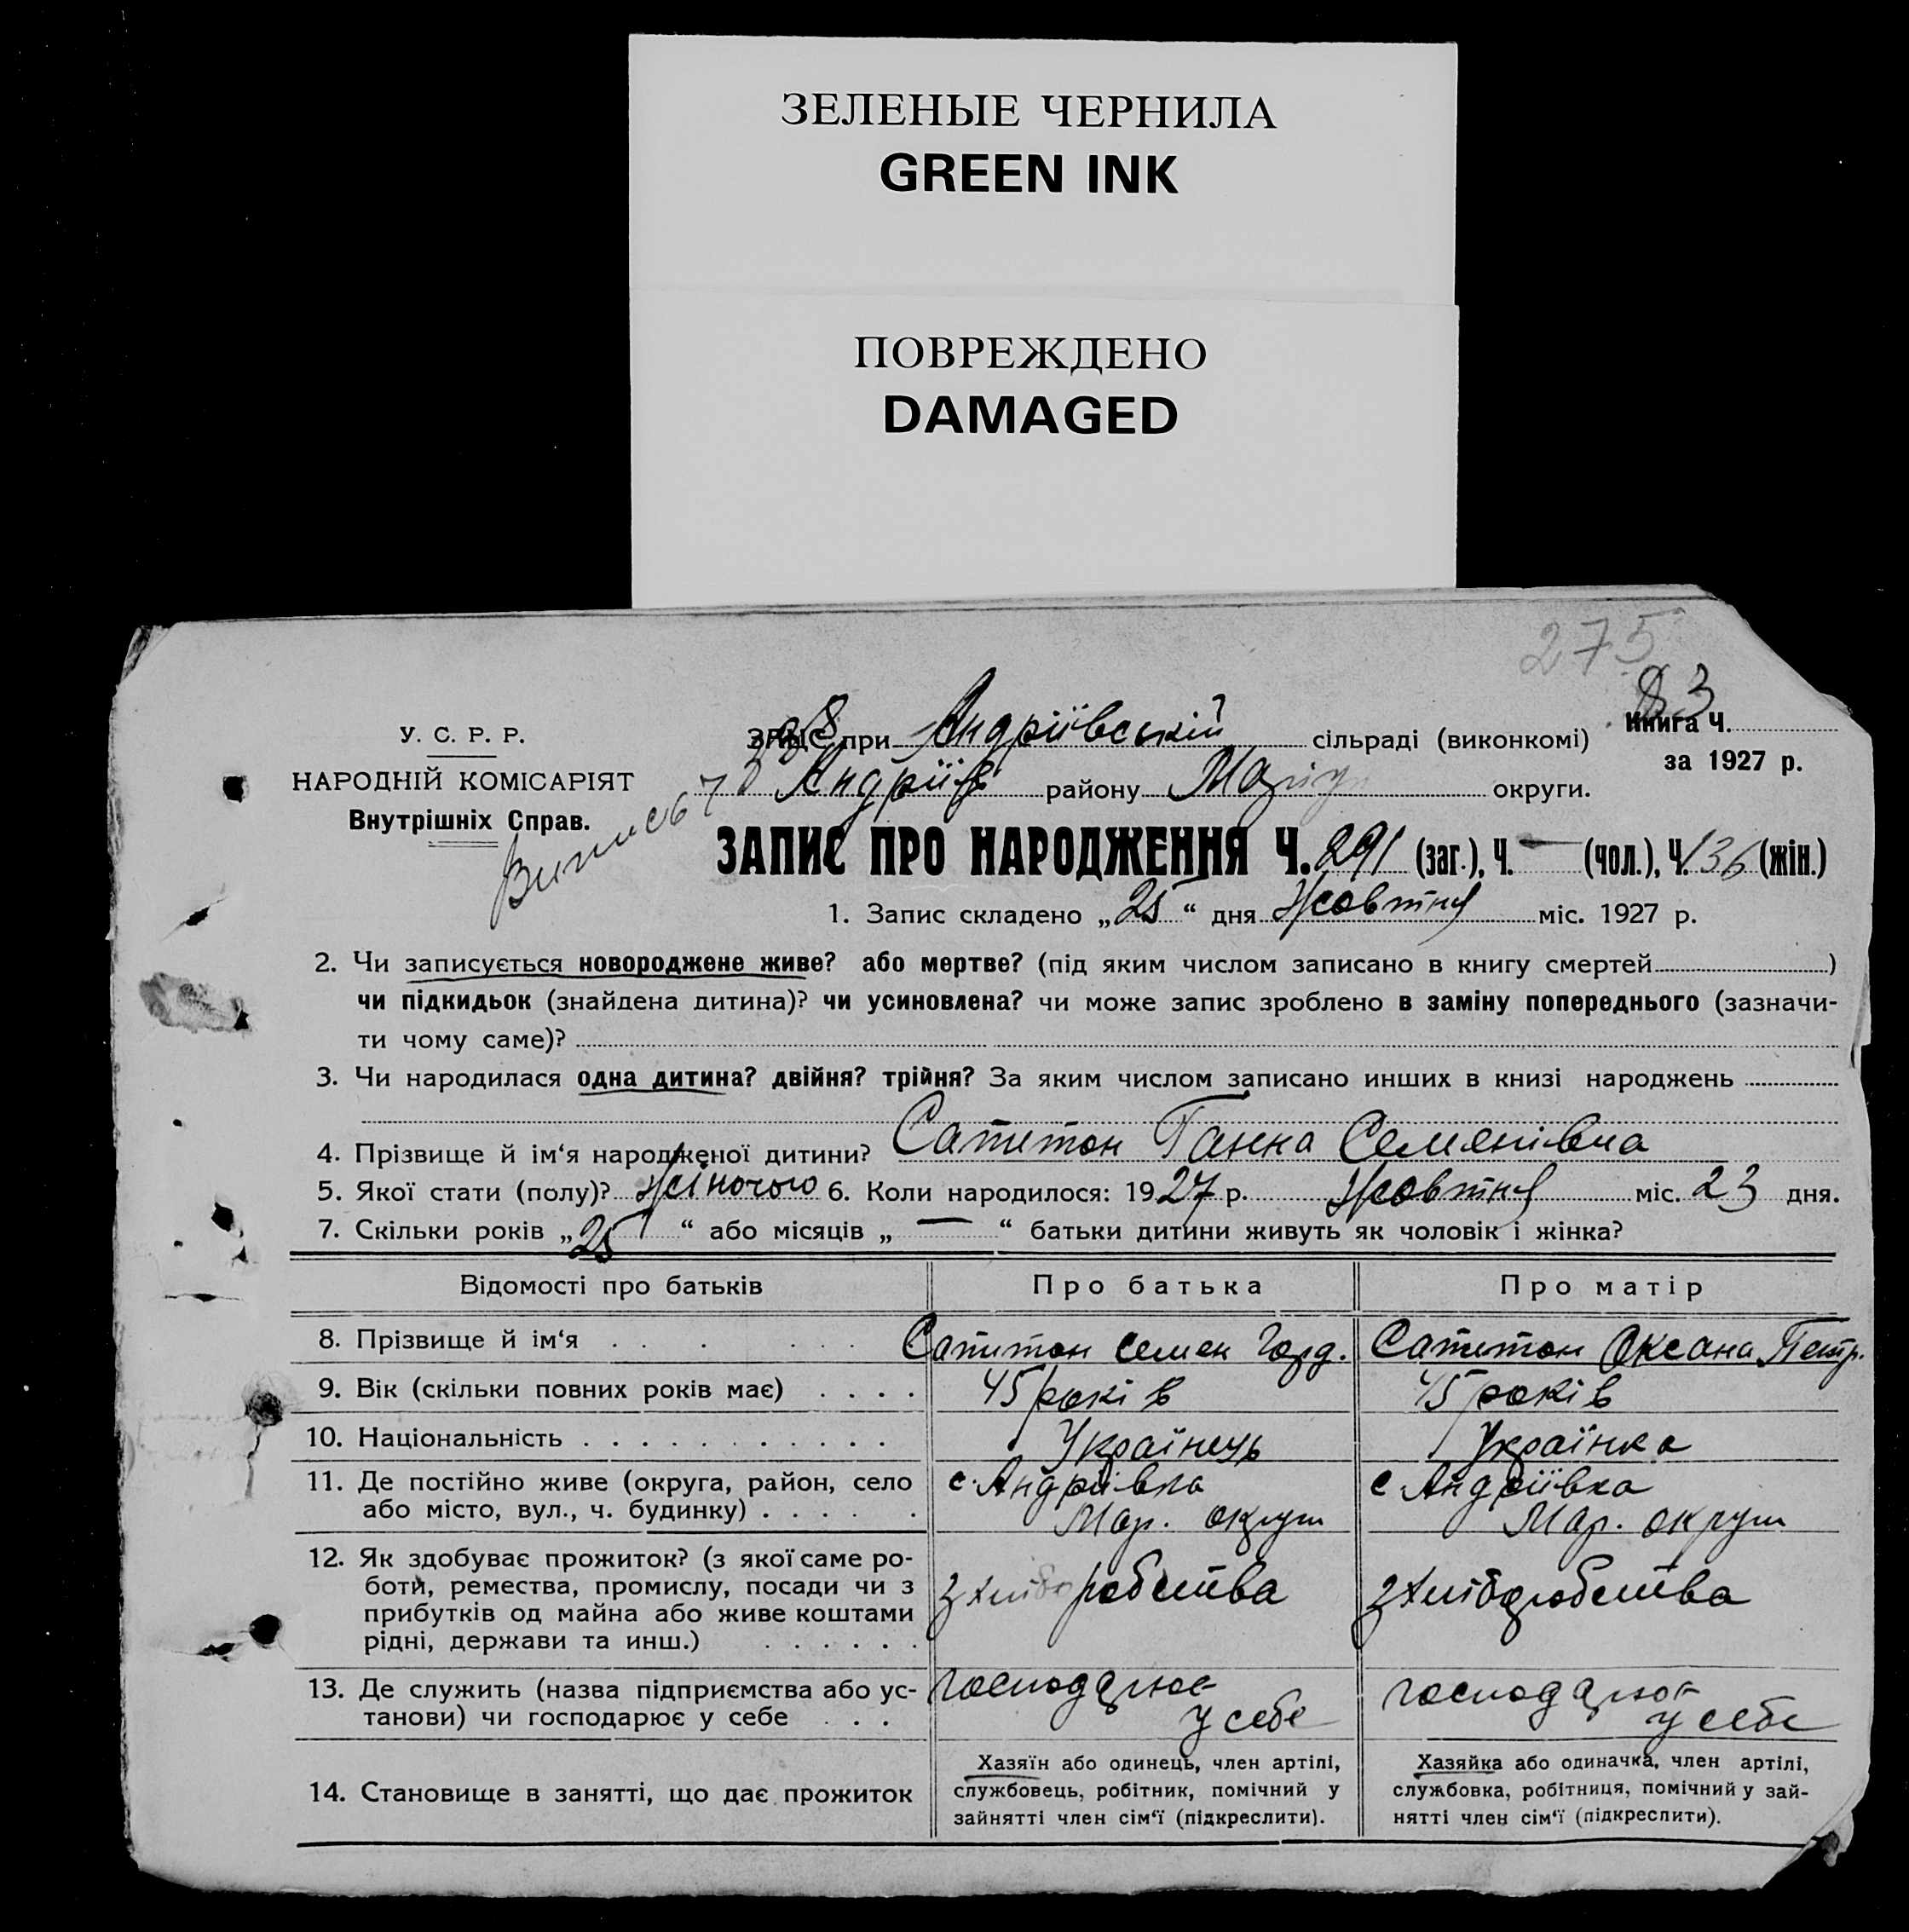 ЗЕЛЕНЫЕ ЧЕРНИЛА
GREEN INK
ПОВРЕЖДЕНО
DAMAGED
275
83
У. С. Р. Р.
НАРОДНІЙ КОМІСАРІЯТ
Внутрішніх Справ.
ЗАЦС при Андріївській сільраді (виконкомі)
Книга Ч.
за 1927 р.
Андріїв району Маріу округи.
ЗАПИС ПРО НАРОДЖЕННЯ Ч. 291 (заг.), Ч. — (чол.), Ч. 136 (жін.)
1. Запис складено „25“ дня Жовтня міс. 1927 р.
2. Чи записується новороджене живе? або мертве? (під яким числом записано в книгу смертей)
чи підкидьок (знайдена дитина)? чи усиновлена? чи може запис зроблено в заміну попереднього (зазначи-
ти чому саме)?
3. Чи народилася одна дитина? двійня? трійня? За яким числом записано инших в книзі народжень
4. Прізвище й ім‘я народженої дитини? Сатитон Ганна Семенівна
5. Якої стати (полу)? Жіночою 6. Коли народилося: 1927 р. Жовтня міс. 23 дня.
7. Скільки років „25“ або місяців „—“ батьки дитини живуть як чоловік і жінка?
Відомості про батьків Про батька Про матір
8. Прізвище й ім‘я Сатитон Семен Горд. Сатитон Оксана Петр.
9. Вік (скільки повних років має) 45 років 45 років
10. Національність Українець Українка
11. Де постійно живе (округа, район, село с. Андріівка с Андріївка
або місто, вул., ч. будинку) Мар. округи Мар. округи
12. Як здобуває прожиток? (з якої саме ро-
боти, ремества, промислу, посади чи з з хліборобства з хліборобства
прибутків од майна або живе коштами
рідні, держави та инш.)
13. Де служить (назва підприємства або ус- господарює господарює
танови) чи господарює у себе у себе у себе
14. Становище в занятті, що дає прожиток
Хазяїн або одинець, член артілі,
службовець, робітник, помічний у
зайнятті член сім‘ї (підкреслити).
Хазяйка або одиначка, член артілі,
службовка, робітниця, помічний у зай-
нятті член сім‘ї (підкреслити).